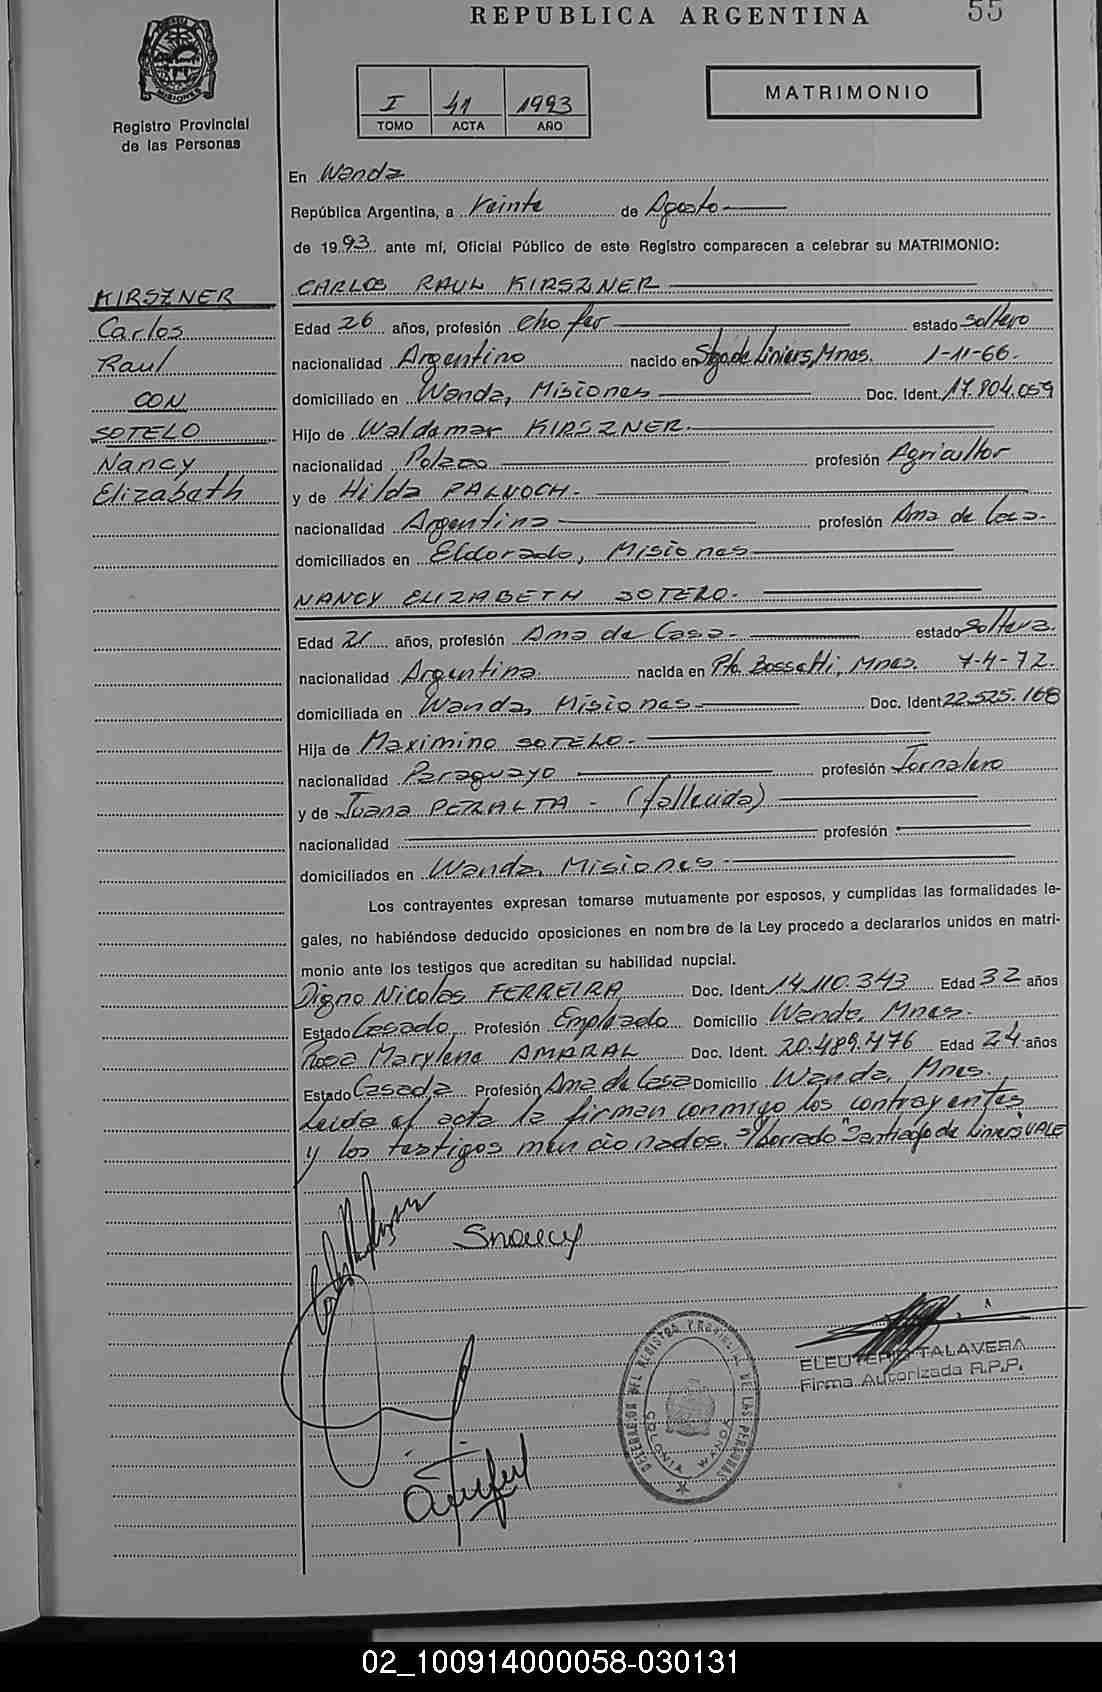 REPUBLICA ARGENTINA
55
MISIONES
Registro Provincial
de las Personas
I 41 1993
TOMO ACTA AÑO
MATRIMONIO
En Wanda
República Argentina, a Veinte de Agosto
de 1993 ante mí, Oficial Público de este Registro comparecen a celebrar su MATRIMONIO:
KIRSZNER
Carlos
Raul
CON
SOTELO
Nancy
Elizabeth
CARLOS RAUL KIRSZNER
Edad 26 años, profesión Chofer estado soltero
nacionalidad Argentino nacido en Stgo de Liniers, Mnes. 1-11-66.
domiciliado en Wanda, Misiones Doc. Ident. 17.804.059
Hijo de Waldemar KIRSZNER.
nacionalidad Polaco profesión Agricultor
y de Hilda PALNOCH.
nacionalidad Argentina profesión Ama de Casa.
domiciliados en Eldorado, Misiones
NANCY ELIZABETH SOTELO.
Edad 21 años, profesión Ama de Casa. estado Soltera.
nacionalidad Argentina nacida en Pto. Bossetti, Mnes. 7-4-72.
domiciliada en Wanda, Misiones Doc. Ident 22.525.168
Hija de Maximino SOTELO.
nacionalidad Paraguayo profesión Jornalero
y de Juana PERALTA - (fallecida)
nacionalidad profesión
domiciliados en Wanda, Misiones.
Los contrayentes expresan tomarse mutuamente por esposos, y cumplidas las formalidades le-
gales, no habiéndose deducido oposiciones en nombre de la Ley procedo a declararlos unidos en matri-
monio ante los testigos que acreditan su habilidad nupcial.
Digno Nicolas FERREIRA, Doc. Ident. 14.110.343 Edad 32 años
Estado Casado, Profesión Empleado Domicilio Wanda, Mnes.
Rosa Marylene AMARAL Doc. Ident. 20.489.476 Edad 24 años
Estado Casada Profesión Ama de Casa Domicilio Wanda, Mnes.
Leida el acta la firman conmigo los contrayentes
y los testigos mencionados. S/borrado "Santiago de Liniers" VALE
DELEGACION DEL REGISTRO PROVINCIAL DE LAS PERSONAS
COLONIA WANDA
ELEUTERIO TALAVERA
Firma Autorizada R.P.P.
02_100914000058-030131